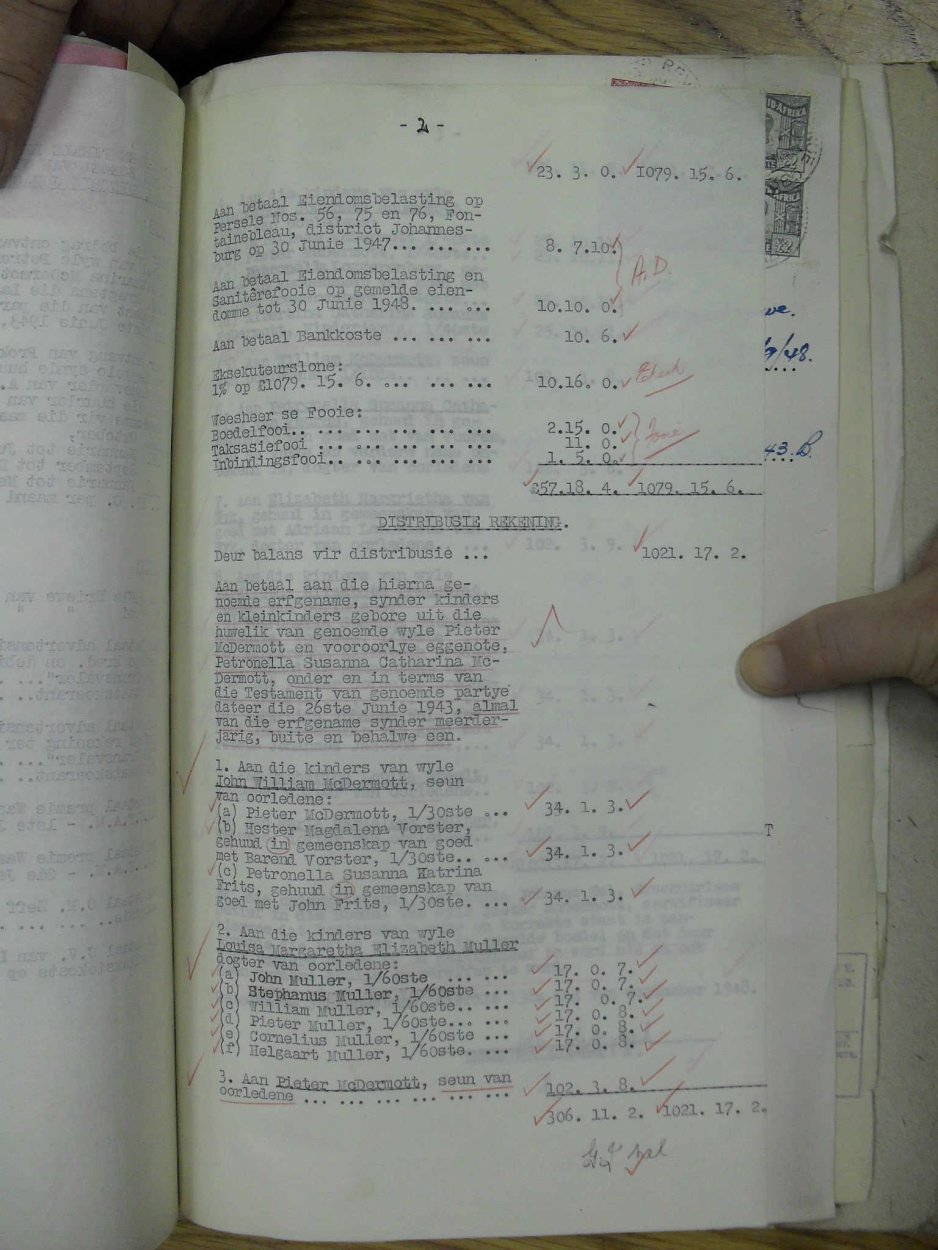 - 2 -
23. 3. 0. 1079. 15. 6.
Aan betaal Eiendomsbelasting op
Persele Nos. 56, 75 en 76, Fon-
tainebleau, district Johannes-
burg op 30 Junie 1947... ... ... 8. 7.10.
Aan betaal Eiendomsbelasting en
Sanitêrefooie op gemelde eien-
domme tot 30 Junie 1948. ... ... 10.10. 0.
A.D.
Aan betaal Bankkoste ... ... ... 10. 6.
Eksekuteurslone:
1% op £1079. 15. 6. ... ... ... 10.16. 0.
Weesheer se Fooie:
Boedelfooi.. ... ... ... ... ... 2.15. 0.
Taksasiefooi ... ... ... ... ... 11. 0.
Inbindingsfooi.. ... ... ... ... 1. 5. 0.
£57.18. 4. 1079. 15. 6.
DISTRIBUSIE REKENING.
Deur balans vir distribusie ... 1021. 17. 2.
Aan betaal aan die hierna ge-
noemde erfgename, synder kinders
en kleinkinders gebore uit die
huwelik van genoemde wyle Pieter
McDermott en vooroorlye eggenote,
Petronella Susanna Catharina Mc-
Dermott, onder en in terms van
die Testament van genoemde partye
dateer die 26ste Junie 1943, almal
van die erfgename synder meerder-
jarig, buite en behalwe een.
1. Aan die kinders van wyle
John William McDermott, seun
van oorledene:
(a) Pieter McDermott, 1/30ste ... 34. 1. 3.
(b) Hester Magdalena Vorster,
gehuud in gemeenskap van goed
met Barend Vorster, 1/30ste.. ... 34. 1. 3.
(c) Petronella Susanna Katrina
Frits, gehuud in gemeenskap van
goed met John Frits, 1/30ste. ... 34. 1. 3.
2. Aan die kinders van wyle
Louisa Margaretha Elizabeth Muller
dogter van oorledene:
(a) John Muller, 1/60ste ... ... 17. 0. 7.
(b) Stephanus Muller, 1/60ste ... 17. 0. 7.
(c) William Muller, 1/60ste.. ... 17. 0. 7.
(d) Pieter Muller, 1/60ste... ... 17. 0. 8.
(e) Cornelius Muller, 1/60ste ... 17. 0. 8.
(f) Helgaart Muller, 1/60ste. ... 17. 0. 8.
3. Aan Pieter McDermott, seun van
oorledene ... ... ... ... ... ... 102. 3. 8.
306. 11. 2. 1021. 17. 2.